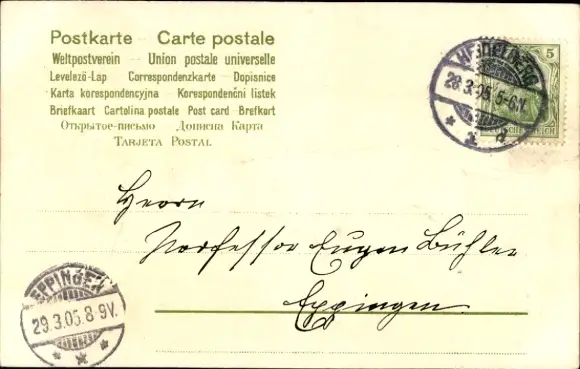 Postkarte - Carte postale
Weltpostverein - Union postale universelle
Levelező-Lap Correspondenzkarte - Dopisnice
Karta korespondencyjna - Korespondenční listek
Briefkaart Cartolina postale Post card - Brefkort
Открытое-письмо Дописна Карта
TARJETA POSTAL
HEIDELBERG
28.3.05.5-6N.
5
DEUTSCHES REICH
Herrn
Professor Eugen Bühler
Eppingen.
EPPINGEN
29.3.05.8-9V.